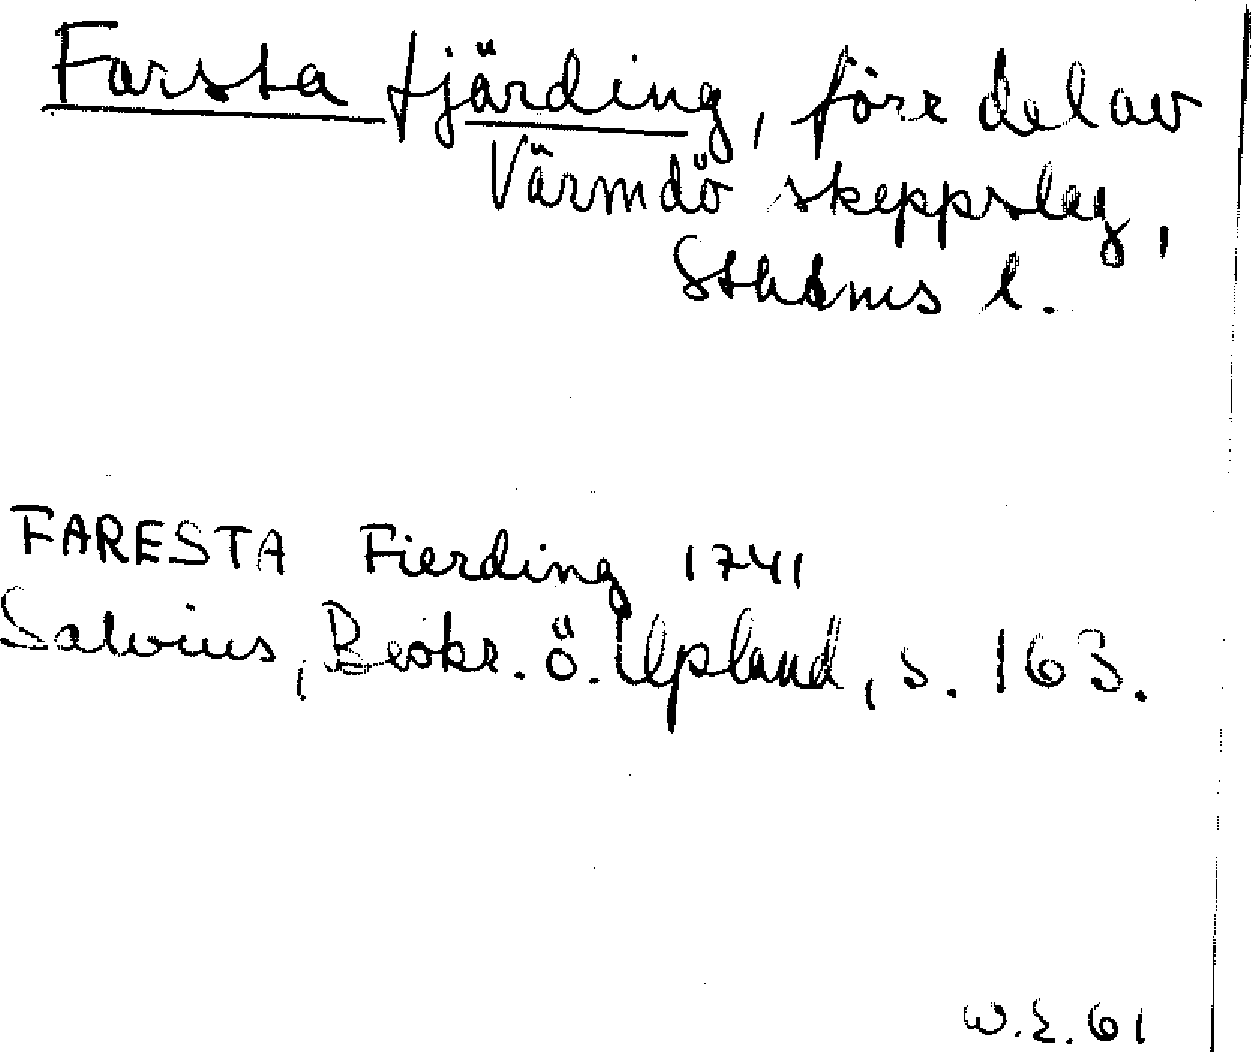 Farsta fjärding, förr del av
Värmdö skeppslag,
Sthlms l.
FARESTA Fierding 1741
Salvius, Beskr. ö. Upland, s. 163.
W.E. 61